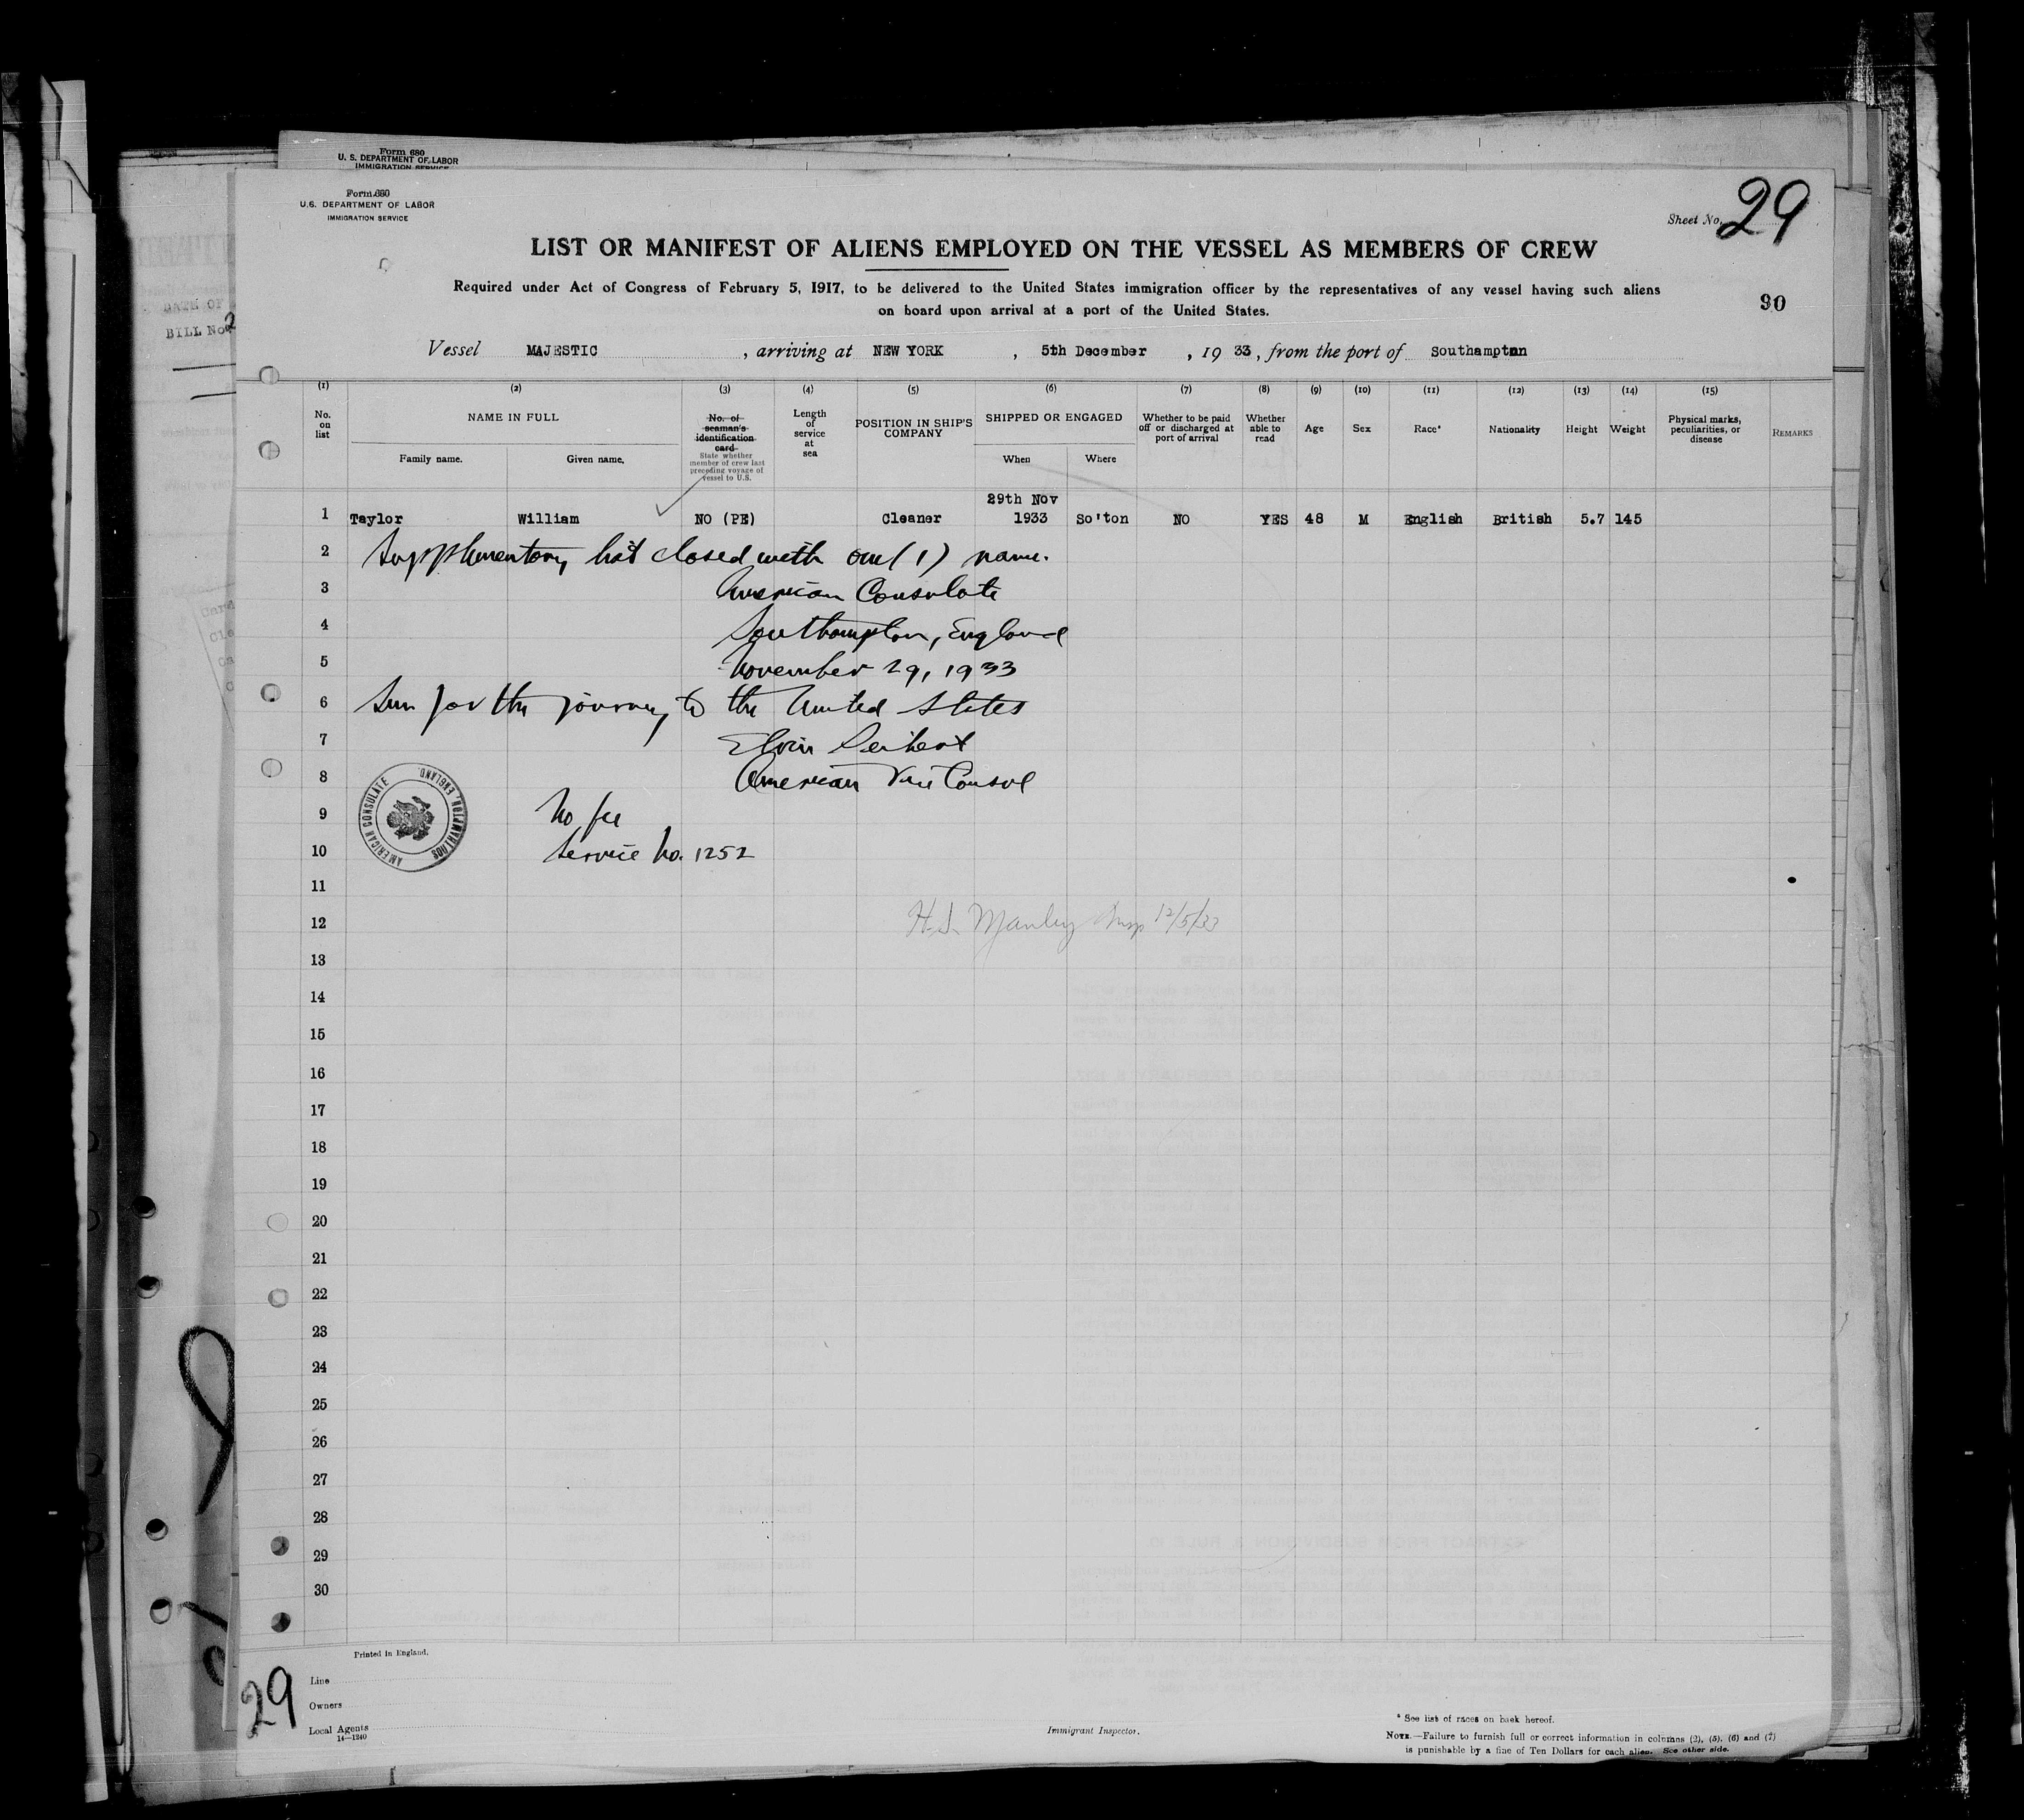 Form 680
U. S. DEPARTMENT OF LABOR
IMMIGRATION SERVICE
Form 680
U.S. DEPARTMENT OF LABOR
IMMIGRATION SERVICE
Sheet No. 29
LIST OR MANIFEST OF ALIENS EMPLOYED ON THE VESSEL AS MEMBERS OF CREW
Required under Act of Congress of February 5, 1917, to be delivered to the United States immigration officer by the representatives of any vessel having such aliens
on board upon arrival at a port of the United States.
90
DATE OF
BILL No.
Vessel MAJESTIC, arriving at NEW YORK, 5th December, 1933, from the port of Southampton
(1) (2) (3) (4) (5) (6) (7) (8) (9) (10) (11) (12) (13) (14) (15)
No. on list
NAME IN FULL
Family name. Given name.
No. of seaman's identification card
State whether member of crew last preceding voyage of vessel to U.S.
Length of service at sea
POSITION IN SHIP'S COMPANY
SHIPPED OR ENGAGED
When Where
Whether to be paid off or discharged at port of arrival
Whether able to read
Age
Sex
Race*
Nationality
Height
Weight
Physical marks, peculiarities, or disease
REMARKS
29th Nov
1 Taylor William NO (PE) Cleaner 1933 So'ton NO YES 48 M English British 5.7 145
2 Supplementary list closed with one (1) name.
3 American Consulate
4 Southampton, England
5 November 29, 1933
6 Seen for the journey to the United States
7 Elvin Seibert
8 American Vice Consul
AMERICAN CONSULATE
SOUTHAMPTON, ENGLAND.
9 No fee
10 Service No. 1252
11
12 H.S. Manley Insp 12/5/33
13
14
15
16
17
18
19
20
21
22
23
24
25
26
27
28
29
30
Printed in England.
29
Line
Owners
Local Agents
14—1240
Immigrant Inspector.
* See list of races on back hereof.
NOTE.—Failure to furnish full or correct information in columns (2), (5), (6) and (7)
is punishable by a fine of Ten Dollars for each alien. See other side.